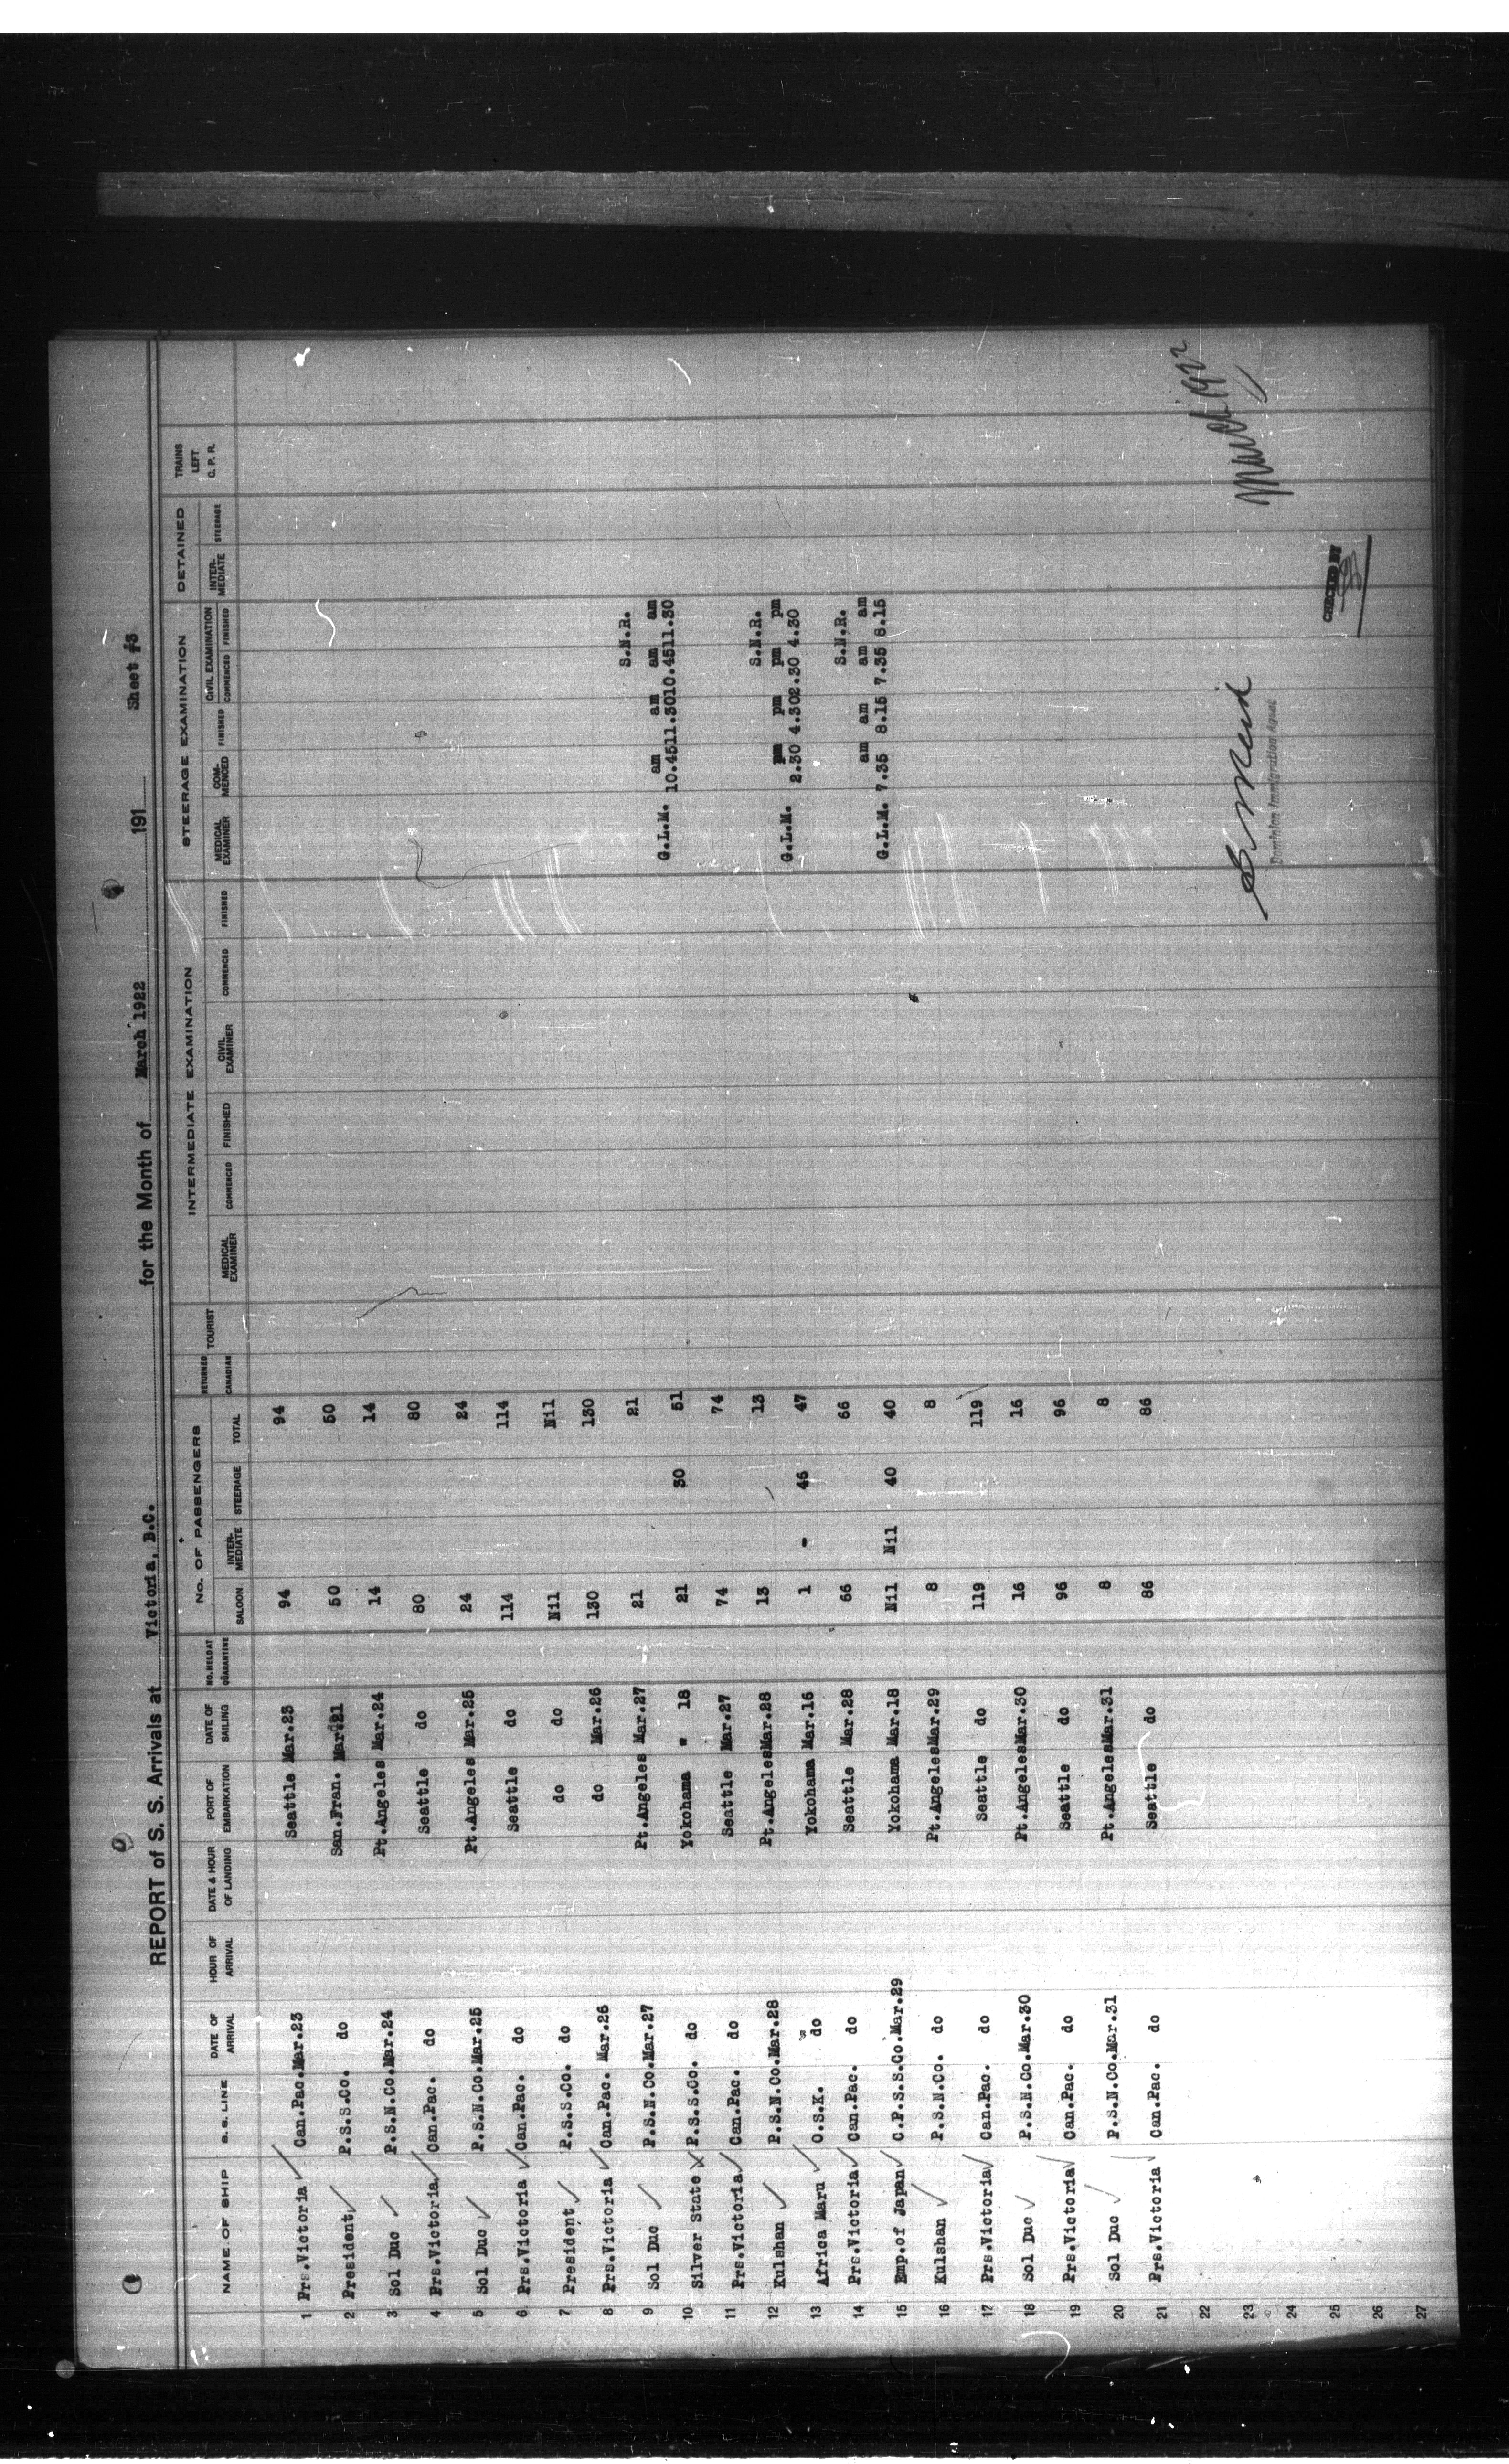 REPORT of S. S. Arrivals at Victoria, B.C. for the Month of March 1922 191 Sheet #3
NAME OF SHIP S.S. LINE DATE OF ARRIVAL HOUR OF ARRIVAL DATE & HOUR OF LANDING PORT OF EMBARKATION DATE OF SAILING NO. HELD AT QUARANTINE No. OF PASSENGERS SALOON INTER-MEDIATE STEERAGE TOTAL RETURNED CANADIAN TOURIST INTERMEDIATE EXAMINATION MEDICAL EXAMINER COMMENCED FINISHED CIVIL EXAMINER COMMENCED FINISHED STEERAGE EXAMINATION MEDICAL EXAMINER COM-MENCED FINISHED CIVIL EXAMINATION COMMENCED FINISHED DETAINED INTER-MEDIATE STEERAGE TRAINS LEFT C. P. R.
1 Prs.Victoria Can.Pac.Mar.23 Seattle Mar.23 94 94
2 President P.S.S.Co. do San.Fran. Mar.21 50 50
3 Sol Duc P.S.N.Co.Mar.24 Pt.Angeles Mar.24 14 14
4 Prs.Victoria Can.Pac. do Seattle do 80 80
5 Sol Duc P.S.N.Co.Mar.25 Pt.Angeles Mar.25 24 24
6 Prs.Victoria Can.Pac. do Seattle do 114 114
7 President P.S.S.Co. do do do Nil Nil
8 Prs.Victoria Can.Pac. Mar.26 do Mar.26 130 130
9 Sol Duc P.S.N.Co.Mar.27 Pt.Angeles Mar.27 21 21 S.N.R.
am am am am
10 Silver State P.S.S.Co. do Yokohama " 18 21 30 51 G.L.M. 10.4511.3010.4511.30
11 Prs.Victoria Can.Pac. do Seattle Mar.27 74 74
12 Kulshan P.S.N.Co.Mar.28 Pt.AngelesMar.28 13 13 S.N.R.
pm pm pm pm
13 Africa Maru O.S.K. do Yokohama Mar.16 1 - 46 47 G.L.M. 2.30 4.302.30 4.30
14 Prs.Victoria Can.Pac. do Seattle Mar.28 66 66 S.N.R.
am am am am
15 Emp.of Japan C.P.S.S.Co.Mar.29 Yokohama Mar.18 Nil Nil 40 40 G.L.M. 7.35 8.15 7.35 8.15
16 Kulshan P.S.N.Co. do Pt.AngelesMar.29 8 8
17 Prs.Victoria Can.Pac. do Seattle do 119 119
18 Sol Duc P.S.N.Co.Mar.30 Pt.AngelesMar.30 16 16
19 Prs.Victoria Can.Pac. do Seattle do 96 96
20 Sol Duc P.S.N.Co.Mar.31 Pt.AngelesMar.31 8 8
21 Prs.Victoria Can.Pac. do Seattle do 86 86
22
23
24
25
26
27
Dominion Immigration Agent
March 1922
CHECKED BY